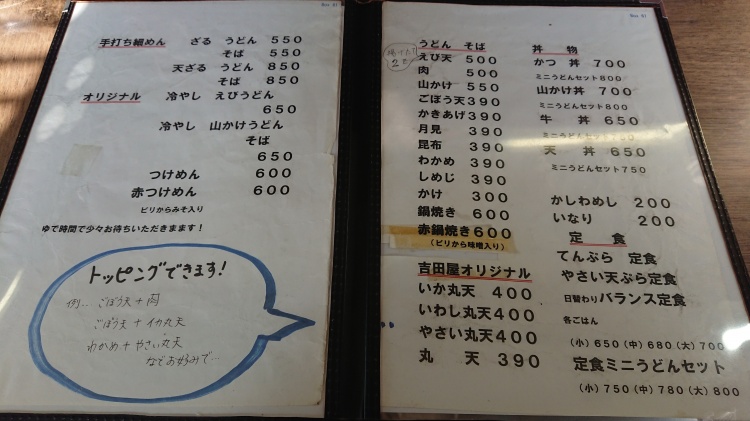 手打ち細めん ざる うどん 550
そば 550
天ざる うどん 850
そば 850
オリジナル 冷やし えびうどん
650
冷やし 山かけうどん
そば
650
つけめん 600
赤つけめん 600
ピリからみそ入り
ゆで時間で少々お待ちいただきます!
トッピングできます!
例.. ごぼう天+肉
ごぼう天+イカ丸天
わかめ+やさい丸天
などお好みで…
うどん そば
えび天 500
肉 500
山かけ 550
ごぼう天 390
かきあげ 390
月見 390
昆布 390
わかめ 390
しめじ 390
かけ 300
鍋焼き 600
赤鍋焼き 600
(ピリから味噌入り)
吉田屋オリジナル
いか丸天 400
いわし丸天 400
やさい丸天 400
丸 天 390
丼 物
かつ 丼 700
ミニうどんセット 800
山かけ丼 700
ミニうどんセット 800
牛 丼 650
ミニうどんセット 750
天 丼 650
ミニうどんセット 750
かしわめし 200
いなり 200
定 食
てんぷら 定食
やさい天ぷら定食
日替わりバランス定食
各ごはん
(小) 650 (中) 680 (大) 700
定食ミニうどんセット
(小) 750 (中) 780 (大) 800